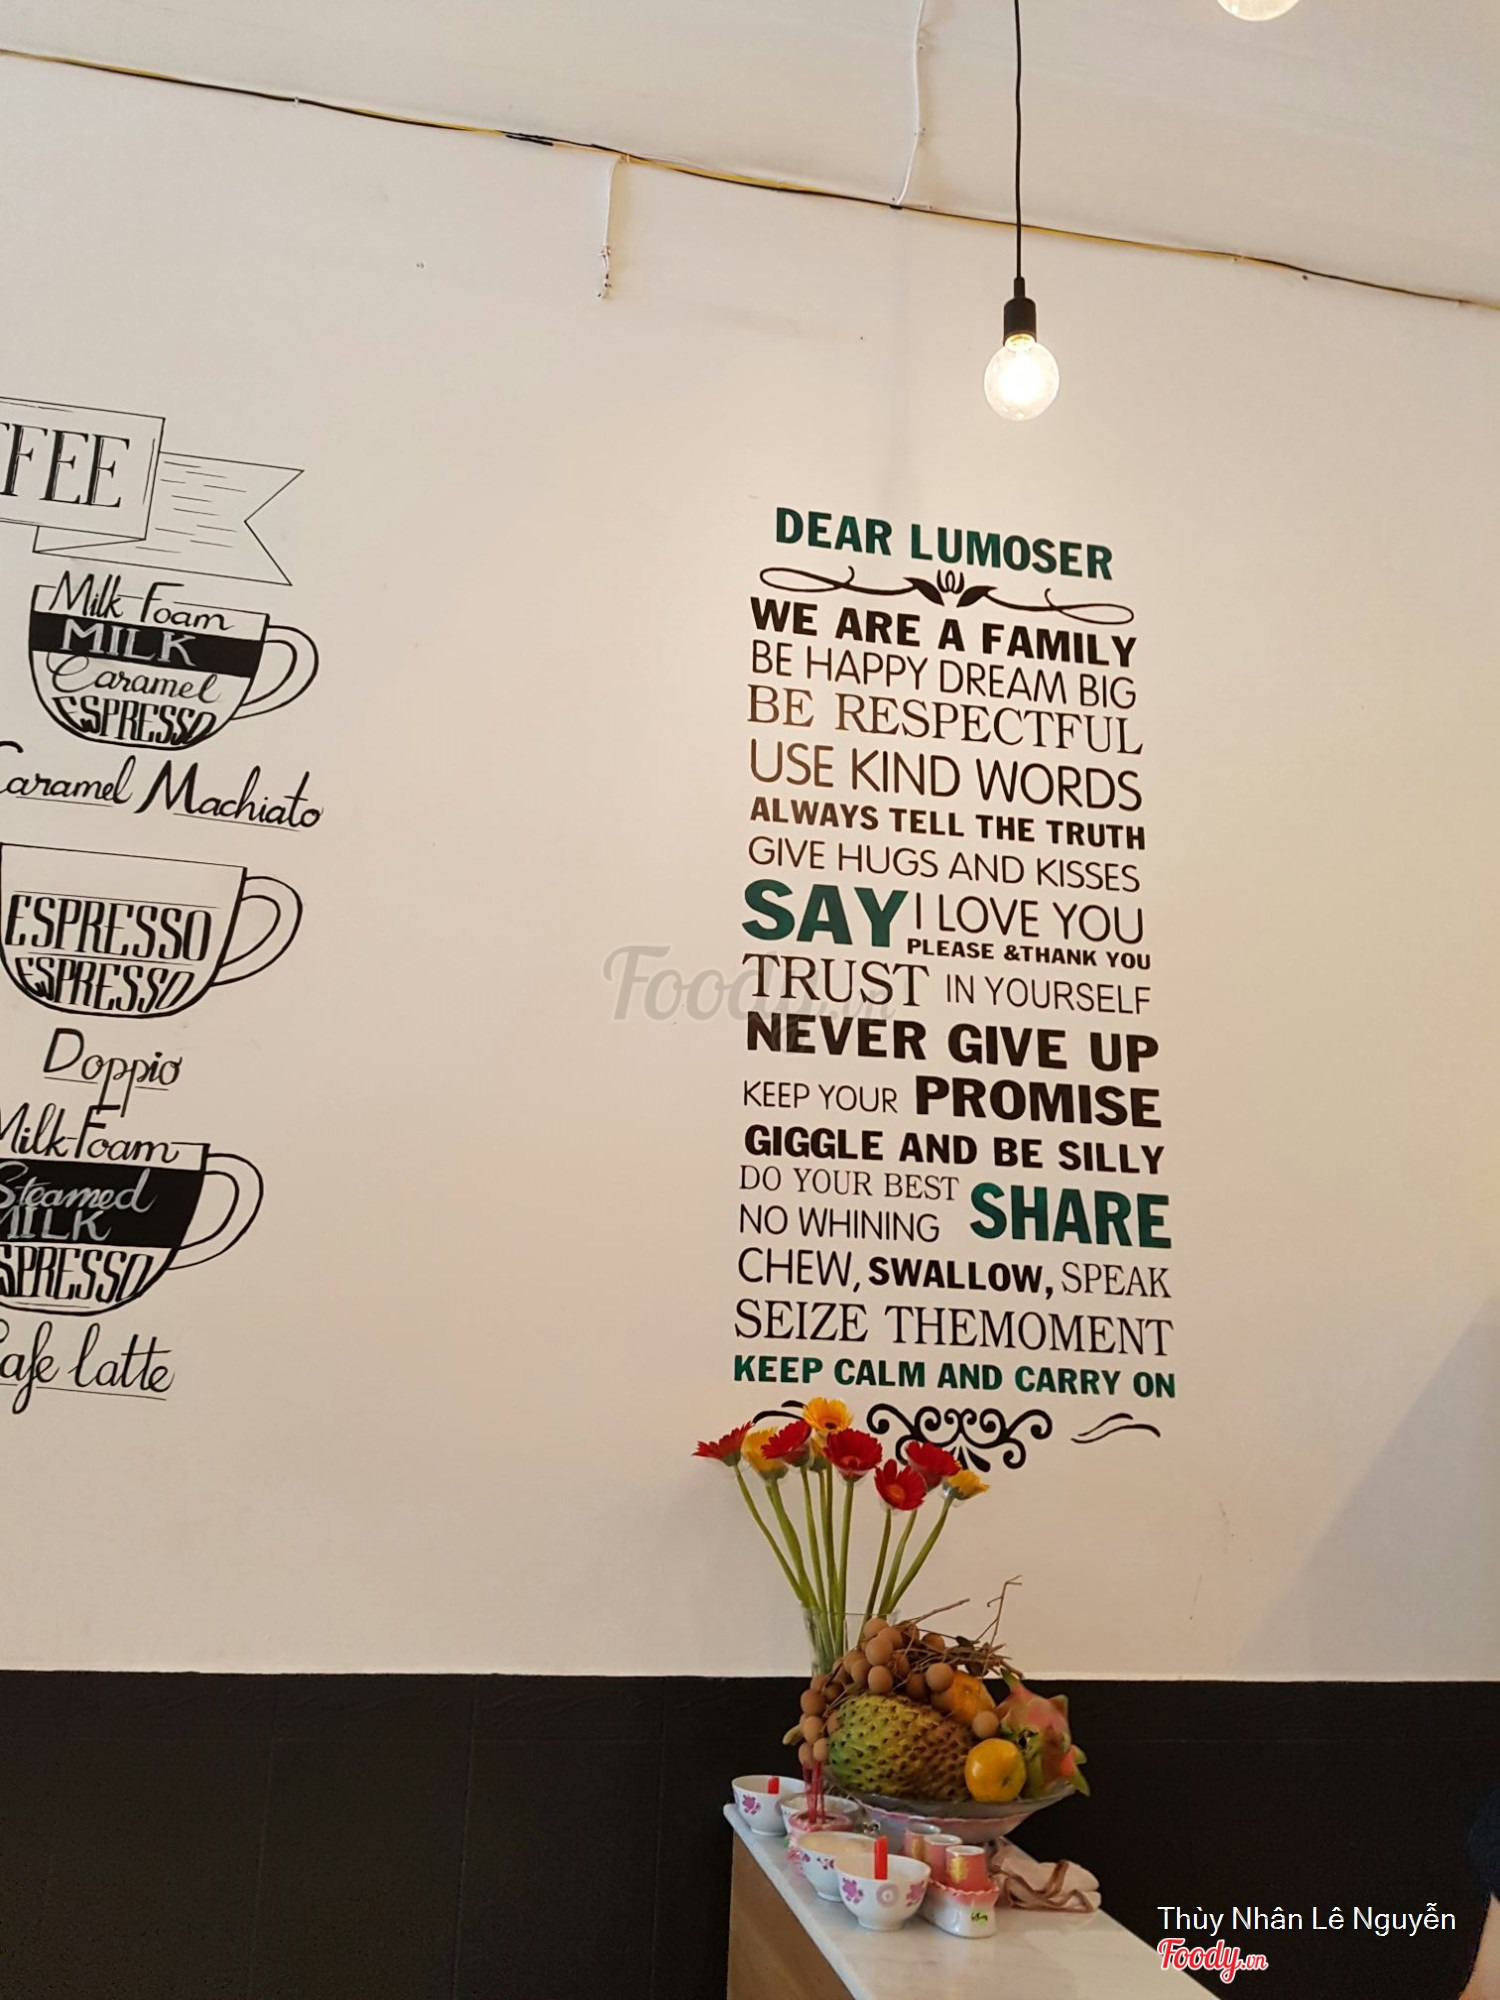 FEE
Milk Foam
MILK
Caramel
ESPRESSO
Caramel Machiato
ESPRESSO
ESPRESSO
Doppio
Milk Foam
Steamed
MILK
ESPRESSO
Cafe latte
DEAR LUMOSER
WE ARE A FAMILY
BE HAPPY DREAM BIG
BE RESPECTFUL
USE KIND WORDS
ALWAYS TELL THE TRUTH
GIVE HUGS AND KISSES
SAY I LOVE YOU
PLEASE &THANK YOU
TRUST IN YOURSELF
NEVER GIVE UP
KEEP YOUR PROMISE
GIGGLE AND BE SILLY
DO YOUR BEST SHARE
NO WHINING
CHEW, SWALLOW, SPEAK
SEIZE THEMOMENT
KEEP CALM AND CARRY ON
Foody.vn
Thùy Nhân Lê Nguyễn
Foody.vn